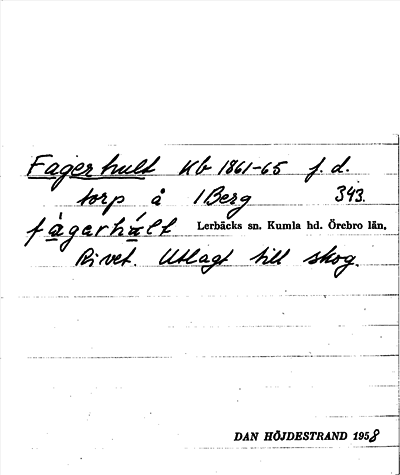 Fagerhult Kb 1861-65 f.d.
torp å 1 Berg 343.
fàgarhált Lerbäcks sn. Kumla hd. Örebro län.
Rivet. Utlagt till skog.
DAN HÖJDESTRAND 1958